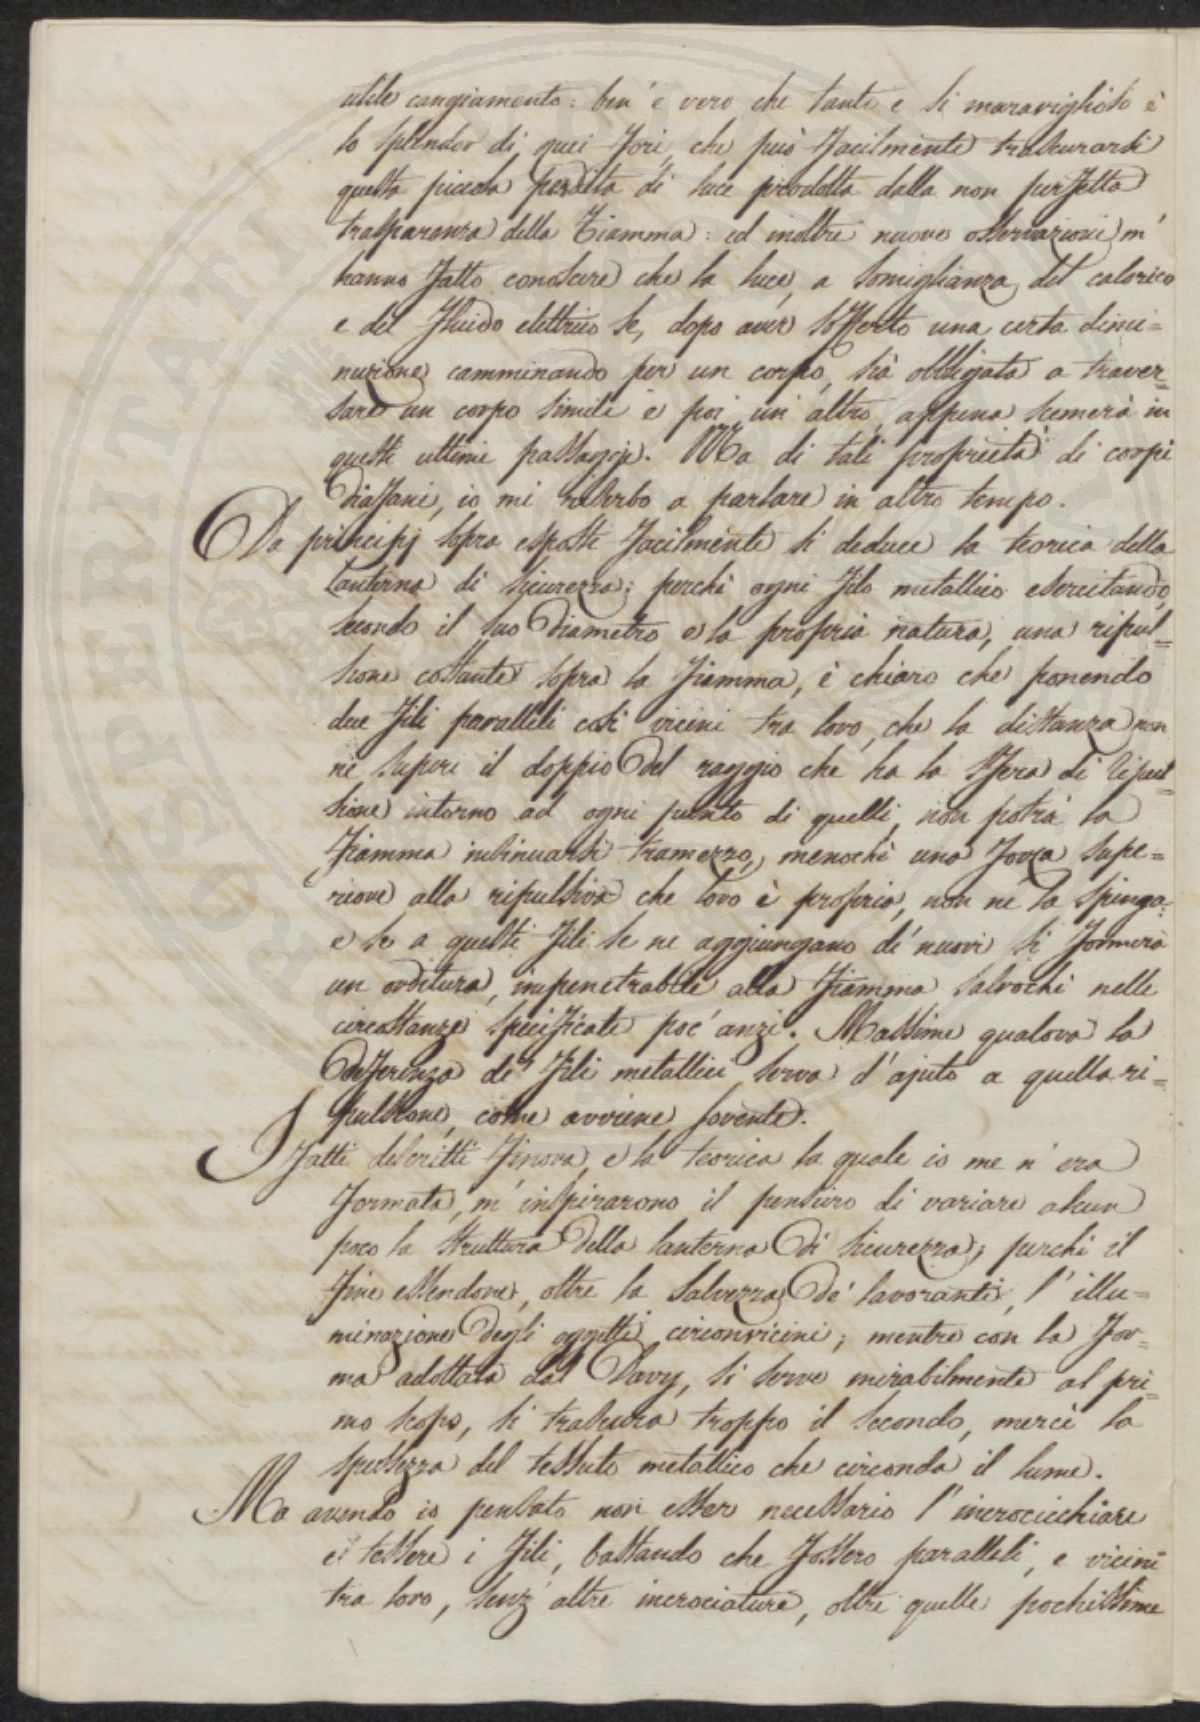 utile cangiamento: ben' è vero che tanto e sì maraviglioso è
lo splendor di quei fori, che può facilmente trascurarsi
questa piccola perdita di luce prodotta dalla non perfetta
trasparenza della fiamma: ed inoltre nuove osservazioni m'
hanno fatto conoscere che la luce, a somiglianza del calorico
e del fluido elettrico se, dopo aver sofferto una certa dimi=
nuzione camminando per un corpo, sia obbligata a traver=
sare un corpo simile e poi un' altro, appena scemerà in
questi ultimi passaggi. Ma di tali proprietà di corpi
diafani, io mi riserbo a parlare in altro tempo.
Da principj sopra esposti facilmente si deduce la teorica della
lanterna di sicurezza; perchè ogni filo metallico esercitando,
secondo il suo diametro e la propria natura, una ripul=
sione costante sopra la fiamma, è chiaro che ponendo
due fili paralleli così vicini tra loro, che la distanza non
ne superi il doppio del raggio che ha la sfera di ripul=
sione intorno ad ogni punto di quelli, non potrà la
fiamma insinuarsi tramezzo, menochè una forza supe=
riore alla ripulsiva che loro è propria, non ne la spinga:
e se a questi fili se ne aggiungano de' nuovi si formerà
un orditura, impenetrabile alla fiamma salvochè nelle
circostanze specificate poc' anzi. Massime qualora la
deferenza de' fili metallici serva d'ajuto a quella ri=
pulsione, come avviene sovente.
I fatti descritti finora, e la teorica la quale io me n' era
formata, m' inspirarono il pensiero di variare alcun
poco la struttura della lanterna di sicurezza; perchè il
fine essendone, oltre la salvezza de' lavoranti, l' illu=
minazione degli oggetti circonvicini; mentre con la for=
ma adottata dal Davy, si serve mirabilmente al pri=
mo scopo, si trascura troppo il secondo, mercè la
spessezza del tessuto metallico che circonda il lume.
Ma avendo io pensato non esser necessario l' incrocicchiare
e tessere i fili, bastando che fossero paralleli, e vicini
tra loro, senz' altre incrociature, oltre quelle pochissime